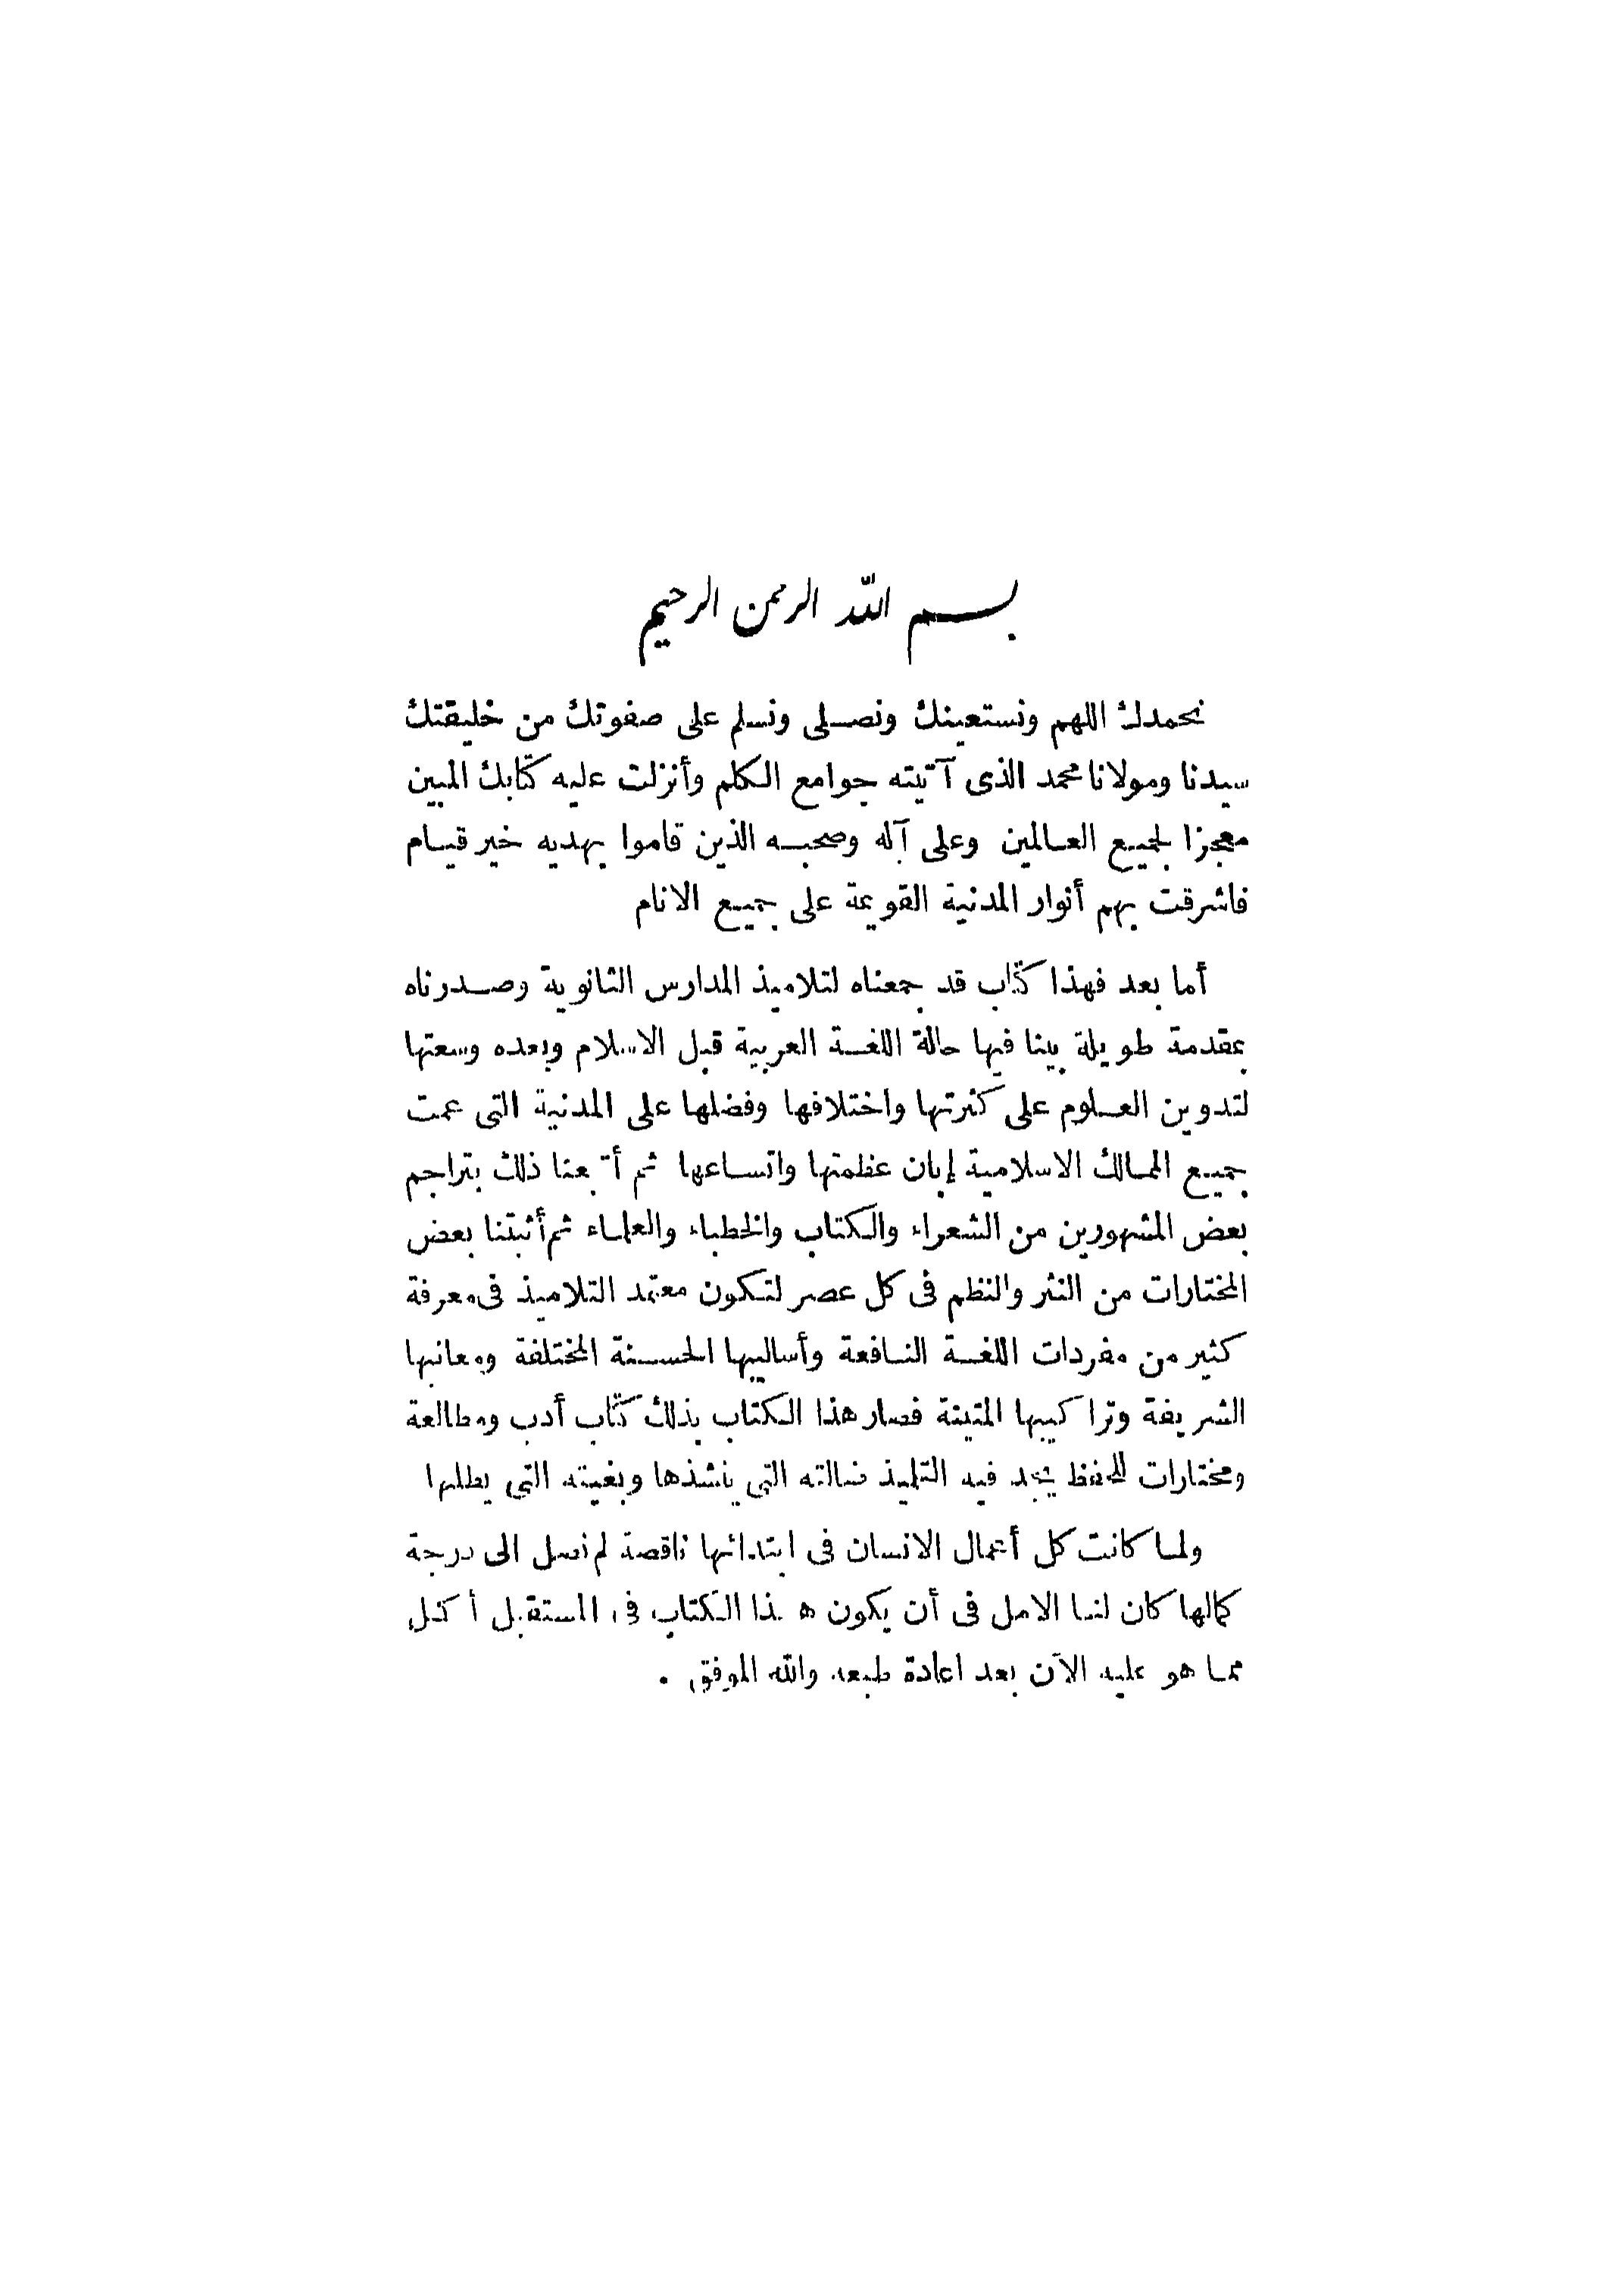 بسم الله الرحمن الرحيم
نحمدك اللهم ونستعينك ونصلى ونسلم على صفوتك من خليقتك
سيدنا ومولانا محمد الذى آتيته جوامع الكلم وأنزلت عليه كتابك المبين
معجزا لجميع العالمين وعلى آله وصحبه الذين قاموا بهديه خير قيام
فاشرقت بهم أنوار المدنية القويمة على جميع الانام
أما بعد فهذا كتاب قد جمعناه لتلاميذ المدارس الثانوية وصدرناه
بمقدمة طويلة بينا فيها حالة اللغة العربية قبل الاسلام وبعده وسعتها
لتدوين العلوم على كثرتها واختلافها وفضلها على المدنية التى عمت
جميع الممالك الاسلامية إبان عظمتها واتساعها ثم أتبعنا ذلك بتراجم
بعض المشهورين من الشعراء والكتاب والخطباء والعلماء ثم أثبتنا بعض
المختارات من النثر والنظم فى كل عصر لتكون معتمد التلاميذ فى معرفة
كثير من مفردات اللغة النافعة وأساليبها الحسنة المختلفة ومعانيها
الشريفة وتراكيبها المتينة فصار هذا الكتاب بذلك كتاب أدب ومطالعة
ومختارات للحفظ يجد فيه التلميذ ضالته التى ينشدها وبغيته التى يطلبها
ولما كانت كل أعمال الانسان فى ابتدائها ناقصة لم تصل الى درجة
كمالها كان لنا الامل فى أن يكون هذا الكتاب فى المستقبل أكمل
مما هو عليه الآن بعد اعادة طبعه والله الموفق .